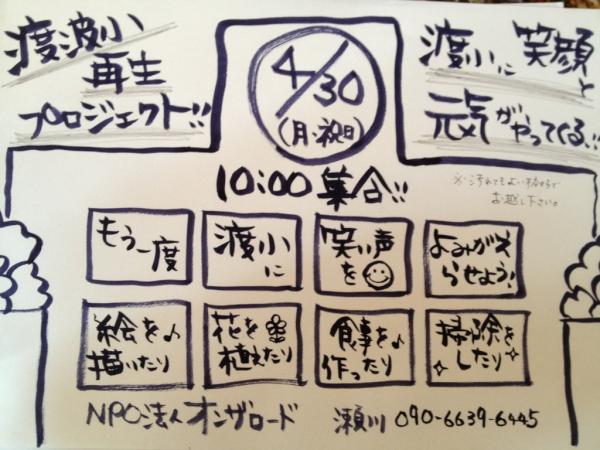 渡波小
再生
プロジェクト!!
4/30
(月・祝日)
渡小に 笑顔と
元気がやってくる!!
10:00 集合!!
※汚れてもよい格好で
お越し下さい。
もう一度
渡小
に
笑い声
を
よみがえ
らせよう!
絵を♪
描いたり
花を
植えたり
食事を♪
作ったり
掃除を
したり
NPO法人オンザロード 瀬川 090-6639-6445